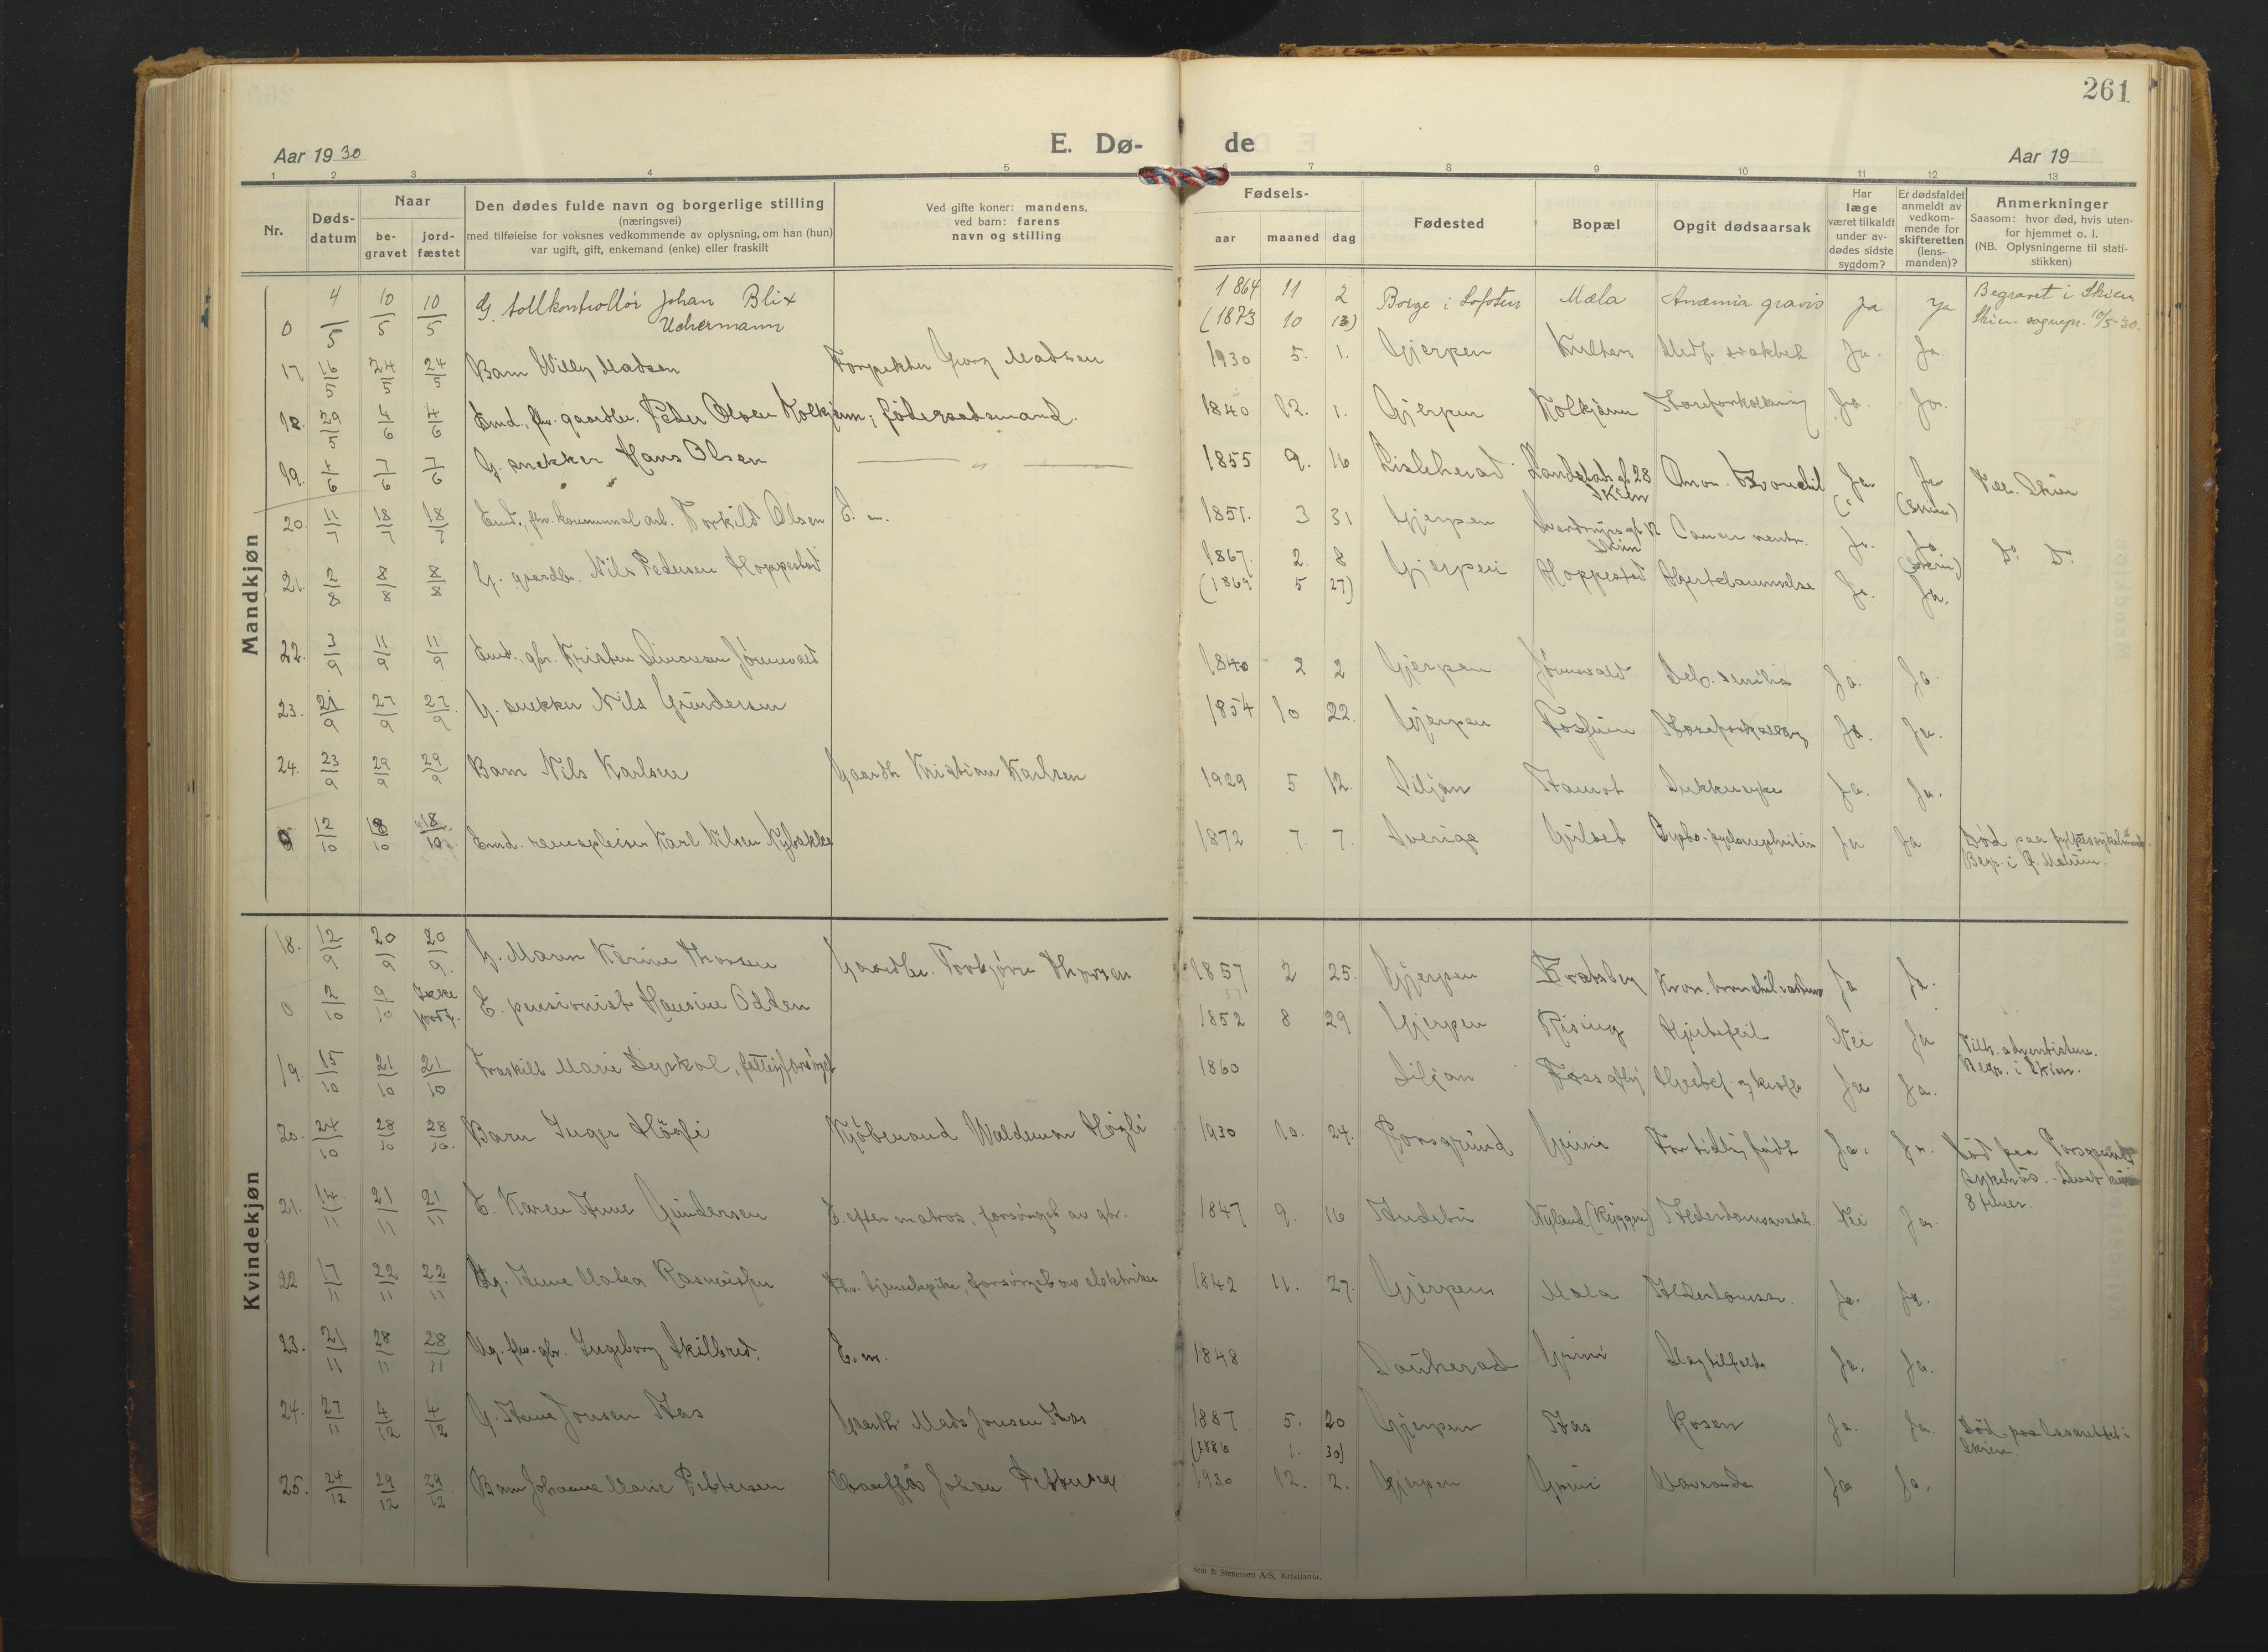 261
Aar 1930
E. Dø- de
Aar 19
1 2 3 4 5 6 7 8 9 10 11 12 13
Nr.
Døds-
datum
Naar
be-
gravet
jord-
fæstet
Den dødes fulde navn og borgerlige stilling
(næringsvei)
med tilføielse for voksnes vedkommende av oplysning, om han (hun)
var ugift, gift, enkemand (enke) eller fraskilt
Ved gifte koner: mandens,
ved barn: farens
navn og stilling
Fødsels-
aar maaned dag
Fødested
Bopæl
Opgit dødsaarsak
Har
læge
været tilkaldt
under av-
dødes sidste
sygdom?
Er dødsfaldet
anmeldt av
vedkom-
mende for
skifteretten
(lens-
manden)?
Anmerkninger
Saasom: hvor død, hvis uten-
for hjemmet o. l.
(NB. Oplysningerne til stati-
stikken)
Mandkjøn
0 4/5 10/5 10/5 G. tollkontrollør Johan Blix Uchermann 1864 11 2 (1873 10 13) Borge i Lofoten Mæla Anæmia gravis Ja Ja Begravet i Skien
Skien sognepr. 10/5-30.
17 16/5 24/5 24/5 Barn Willy Madsen Georg Madsen 1930 5. 1. Gjerpen Medf. svakhet Ja. Ja.
18. 29/5 4/6 4/6 Emd., fhv. gaardbr. Peder Olsen Kolkjønn; føderaadsmand. 1840 12. 1. Gjerpen Kolkjønn Ja. Ja.
19. 4/6 7/6 7/6 G. snekker Hans Olsen 1855 9. 16 Lisleherad 28 Skien Ja. Ja (Skien)
20. 11/7 18/7 18/7 Emd., fhv. kommunal arb. Torkild Olsen E. m. 1851. 3 31 Gjerpen 12 Skien Cancer ventr. Ja. Ja (Skien) Do. Do.
21. 2/8 8/8 8/8 G. gaardbr. Nils Pedersen Hoppestad 1867. 2. 8 (1869 5 27) Gjerpen Hoppestad Hjertelammelse Ja. Ja.
22. 3/9 11/9 11/9 Emd., gbr. Kristen Simonsen Jønnevald 1840 2 2 Gjerpen Jønnevald Deb. senilis Ja. Ja.
23. 21/9 27/9 27/9 G. snekker Nils Gundersen 1854 10 22. Gjerpen Ja. Ja.
24. 23/9 29/9 29/9 Barn Nils Karlsen Gaardb. Kristian Karlsen 1929 5 12. Siljan Ja. Ja.
0 12/10 18/10 18/10 Emd. Karl Nilsen 1872 7. 7. Sverige Gulset Ja Ja Død paa
Begr. i
Kvindekjøn
18. 12/9 20/9 20/9 G. Maren Karine Thorsen Gaardbr. Torbjørn Thorsen 1857 2 25. Gjerpen Bratsberg Ja Ja.
0 2/10 9/10 Ikke jordf. E. pensionist Hansine Odden 1852 8 29 Gjerpen Rising Hjertefeil Nei Ja Tilh. adventisterne.
Begr. i Skien.
19. 15/10 21/10 21/10 Fraskilt Marie Dyrkol, fattigforsørget 1860 Siljan Ja Ja.
20. 24/10 28/10 28/10. Barn Inger Høgli Kjøbmand Waldemar Høgli 1930 10. 24. Porsgrund Grini For tidlig født Ja. Ja. Død paa Porsgrunds
sykehus. - Levet kun
8 timer.
21. 14/11 21/11 21/11 E. Karen Anne Gundersen E. efter matros, forsørget av gbr. 1847 9. 16 Nyland Alderdomssvakh. Nei Ja.
22 17/11 22/11 22/11 Ug. Anne Malea Fhv. tjenestepike, forsørget av elektriker 1842 11. 27. Gjerpen Mæla Alderdomssv. Ja. Ja.
23. 21/11 28/11 28/11 Ug. fhv. gbr. Ingeborg Skilbred. E. m. 1848 Sauherad Grini Slagtilfelde Ja. Ja.
24. 27/11 4/12 4/12 G. Anne Jonsen Aas Gaardb. Mads Jonsen Aas 1887 5. 20 (1886 1. 30) Gjerpen Aas Rosen Ja. Ja. Død paa lasarettet i
Skien.
25. 24/12 29/12 29/12. Barn Johanne Marie Pettersen Johan Pettersen 1930 12. 2. Gjerpen Grini Ja Ja.
Sem & Stenersen A/S, Kristiania.